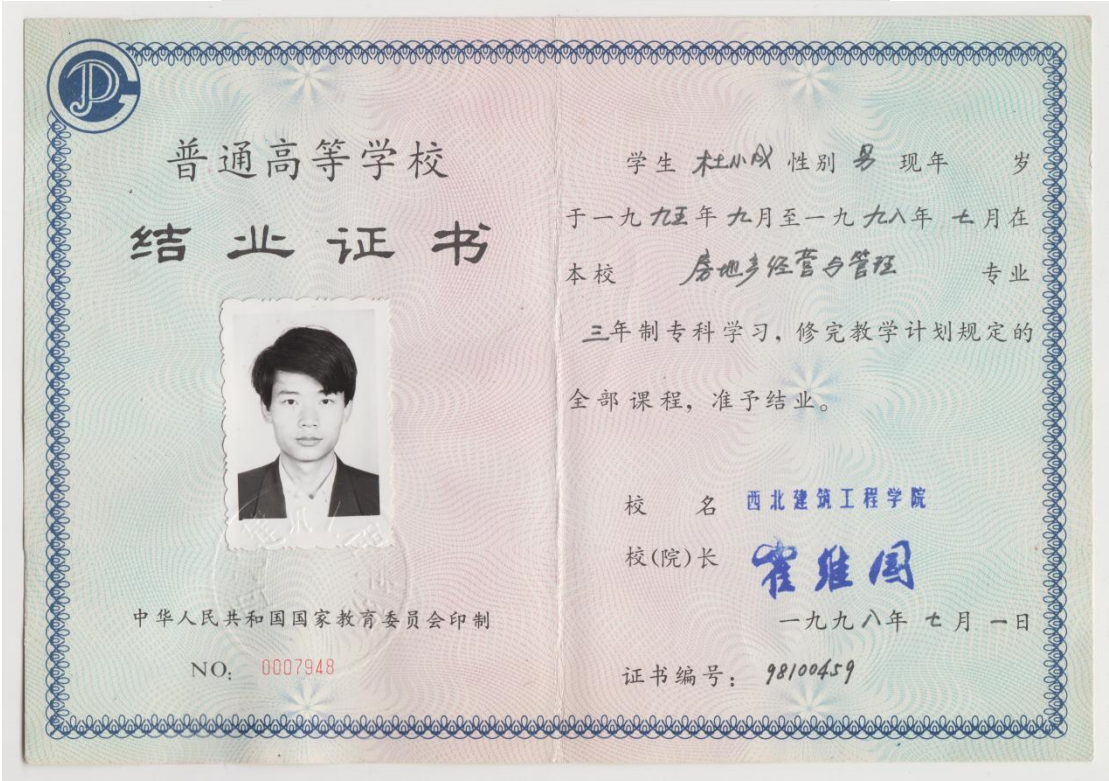 普通高等学校
结业证书
中华人民共和国国家教育委员会印制
NO: 0007948
学生 杜小成 性别 男 现年 岁
于一九九五年九月至一九九八年七月在
本校 房地产经营与管理 专业
三年制专科学习，修完教学计划规定的
全部课程，准予结业。
校 名 西北建筑工程学院
校(院)长 霍维国
一九九八年七月一日
证书编号：98100459